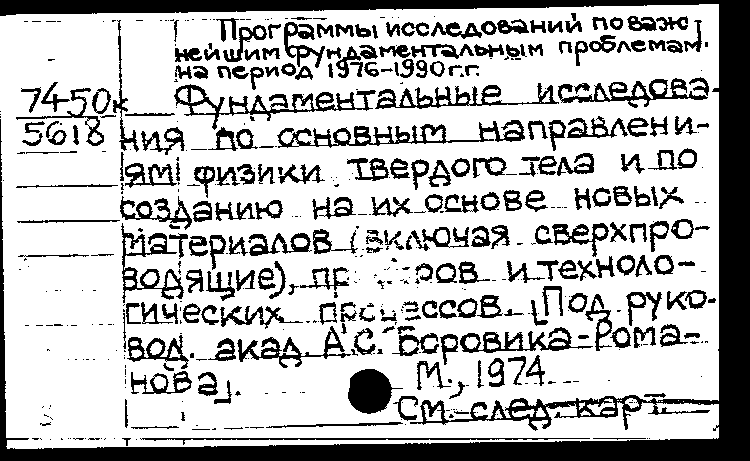 Программы исследований по важ-
нейшим фундаментальным проблемам
на период 1976-1990 г.г.
74-50к Фундаментальные исследова-
5618 ния по основным направлени-
ям физики твердого тела и по
созданию на их основе новых
материалов (включая сверхпро-
водящие), и техноло-
гических процессов. [Под руко-
вод. акад. А.С. Боровика-Рома-
нова]. М., 1974
См. след. карт.